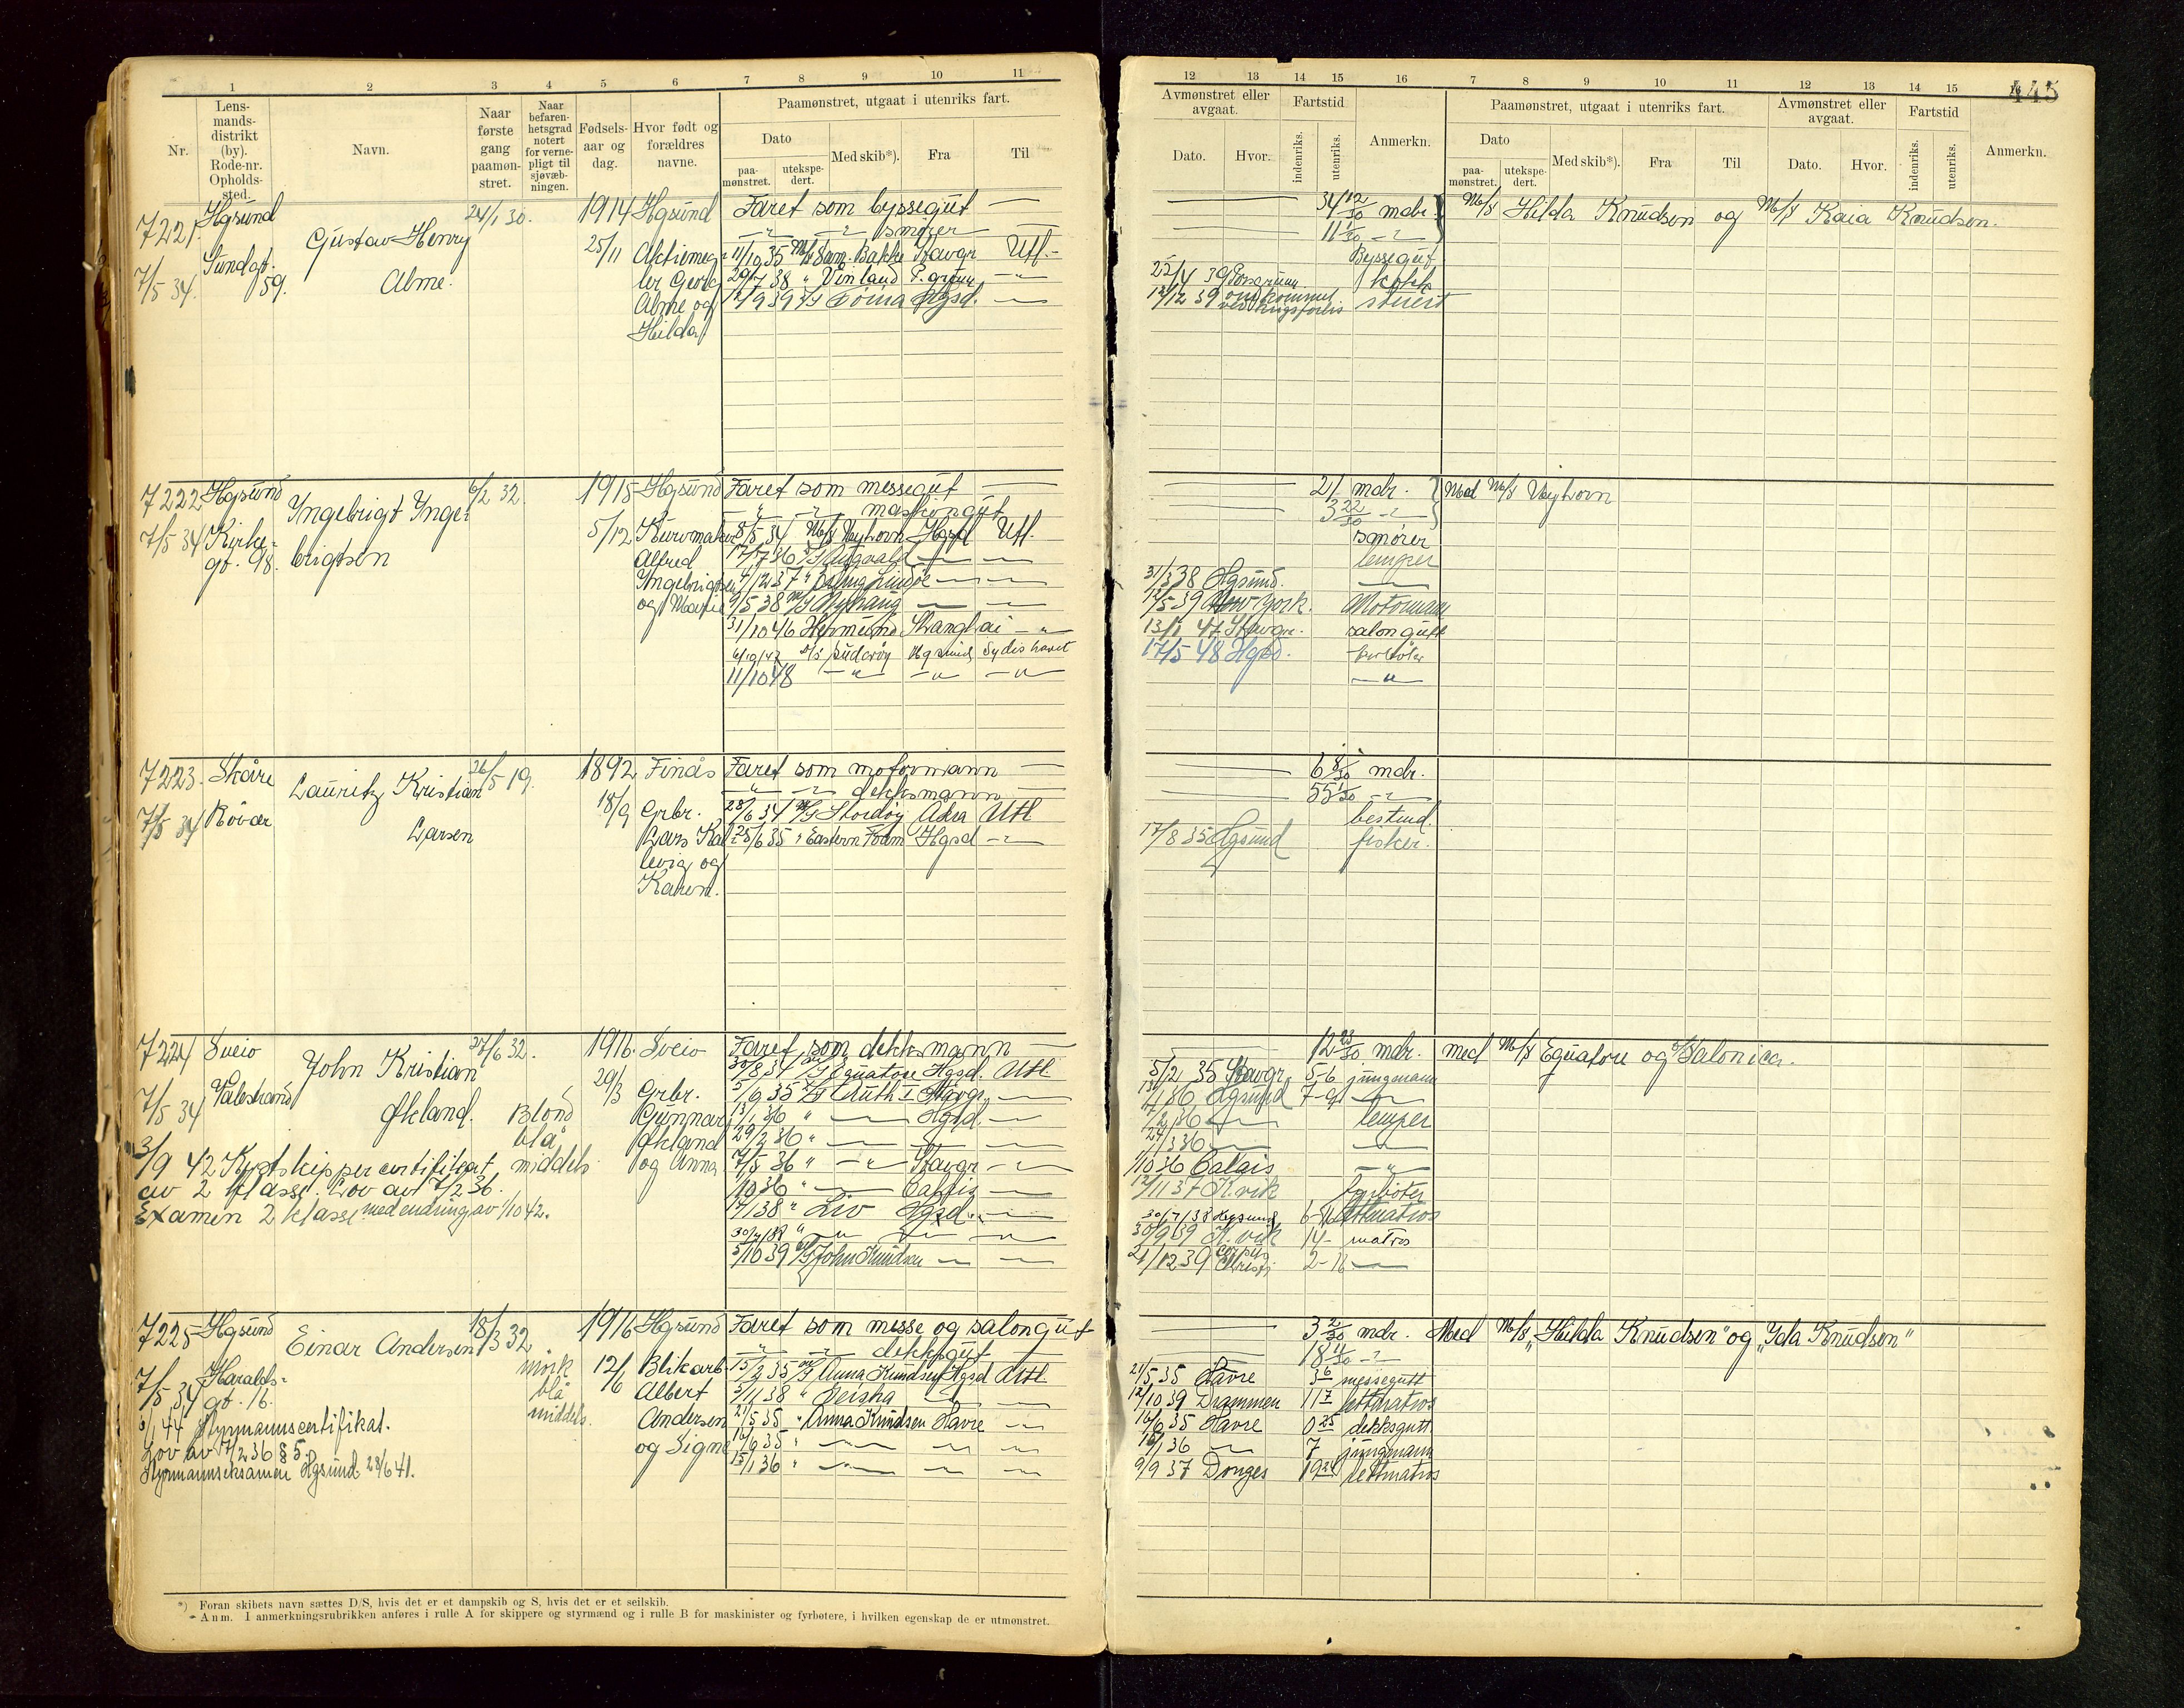 1 2 3 4 5 6 7 8 9 10 11
Nr.
Lens-
mands-
distrikt
(by).
Rode-nr.
Opholds-
sted.
Navn.
Naar
første
gang
paamøn-
stret.
Naar
befaren-
hetsgrad
notert
for verne-
pligt til
sjøvæb-
ningen.
Fødsels-
aar og
dag.
Hvor født og
forældres
navne.
Paamønstret, utgaat i utenriks fart.
Dato
paa-
mønstret.
utekspe-
dert.
Med skib*).
Fra
Til
7221. Hgsund 24/1 30. 1914 Hgsund Faret som byssegut
Gustav Henry — " — smører
7/5 34. Sundgt. 59. Alme. 25/11 Aktiemeg-
ler Georg
Alme og
Hilda
11/10 35 M/S Sam. Bakke Stavgr Utl.
29/7 38 " Vinland P. grunn
12/9 39 Hgsd.
7222 Hgsund Ingebrigt Inge- 6/2 32. 1915 Hgsund Faret som messegut
brigtsen — " — maskongut
7/5 34 Kirke-
gt. 98. 5/12 Kurvmaker
Alfred
Ingebrigtsen
og Marie
8/5 34 M/S Veyhorn Hgsd Utl.
17/7 36
4/12 37
9/5 38
31/10 46 Hermund Shanghai
6/10/47 D/S Suderøy Hgsund Sydishavet
11/10 48 — " — — " — — " —
7223. Skåre Lauritz Kristian 26/5 19. 1892 Finås Faret som motormann
Larsen — " — dekksmann
7/5 34 Røvær 18/9 Grbr.
Lars Kal-
levig og
Karen.
28/6 34 M/S Stordøy Åkra Utl
25/6 35 " Eastern Foam Hgsd — " —
7224 Sveio John Kristian 27/6 32. 1916 Sveio Faret som dekksmann
Økland.
7/5 34 Valestrand Blond
blå
middels
29/3 Grbr.
Gunnar
Økland
og Anna
30/8 34 Equatore Hgsd. Utl
5/9 35 Ruth I Stavgr.
13/1 36 " Hgsd.
29/2 36 "
7/5 36 " — " — Stavgr
1/10 36 " Calais
17/1 38 " Liv Hgsd.
5/10 39 M/S John Knudsen
3/9 42 Kystskippercertifikat
av 2 klasse. Lov av 7/2 36.
Examen 2 klasse med endring av 1/10 42.
7225 Hgsund Einar Andersen 18/3 32 1916 Hgsund Faret som messe og salongut
— " — dekksgut
7/5 34 Haralds-
gt. 16. mörk
blå
middels.
12/6 Blikarb
Albert
Andersen
og Signe
15/2 35 M/S Anna Knudsen Hgsd Utl.
3/11 38 " Geisha
21/5 35 " Anna Knudsen Havre
16/6 35 "
15/1 36 "
Styrmannscertifikat.
Lov av 7/2 36 § 5.
Styrmannseksamen Hgsund 28/6 41.
*) Foran skibets navn sættes D/S, hvis det er et dampskib og S, hvis det er et seilskib.
Anm. I anmerkningsrubrikken anføres i rulle A for skippere og styrmænd og i rulle B for maskinister og fyrbøtere, i hvilken egenskap de er utmønstret.
12 13 14 15 16 7 8 9 10 11 12 13 14 15
445
Avmønstret eller
avgaat.
Dato.
Hvor.
Fartstid
indenriks.
utenriks.
Anmerkn.
Paamønstret, utgaat i utenriks fart.
Dato
paa-
mønstret.
utekspe-
dert.
Med skib*).
Fra
Til
Avmønstret eller
avgaat.
Dato.
Hvor.
Fartstid
indenriks.
utenriks.
Anmerkn.
34 12/30 mdr. M/S Hilda Knudsen og M/S Kaia Knudsen.
11 1/30 — " —
Byssegut
25/4 39 kokk
12/12 39 omkommet
ved krigsforlis stuert
21 mdr. Med M/S Veyhorn
3 22/30 — " —
smører
lemper
31/3 38 Hgsund.
12/5 39 New York. Motormann
13/1 47 Stavgr. salongutt
17/5 48 Hgsd. fyrbøter
— " —
6 8/30 mdr.
55 1/30 — " —
bestmd.
17/8 35 Hgsund fisker.
12 23/30 mdr. med M/S Equatore og Salonica.
5/2 35 Stavgr. 5-6 jungmann
Hgsund 7-9
7/2 36 lemper
24/3 36
1/10 36 Calais — " —
12/11 37 K.vik fyrbøter
30/7/38 Hgsund lettmatros
30/9 39 K.vik 14- matros
21/12 39 Corpus
Christi
3 2/30 mdr. Med M/S „Hilda Knudsen" og „Ida Knudsen"
18 11/30 — " —
21/5 35 Havre 3 6 messegutt
12/10 39 Drammen 11 7 lettmatros
16/6 35 Havre 0 25 dekksgutt
16/1 36 7 jungmann
9/9 37 Donges 19 24 lettmatros